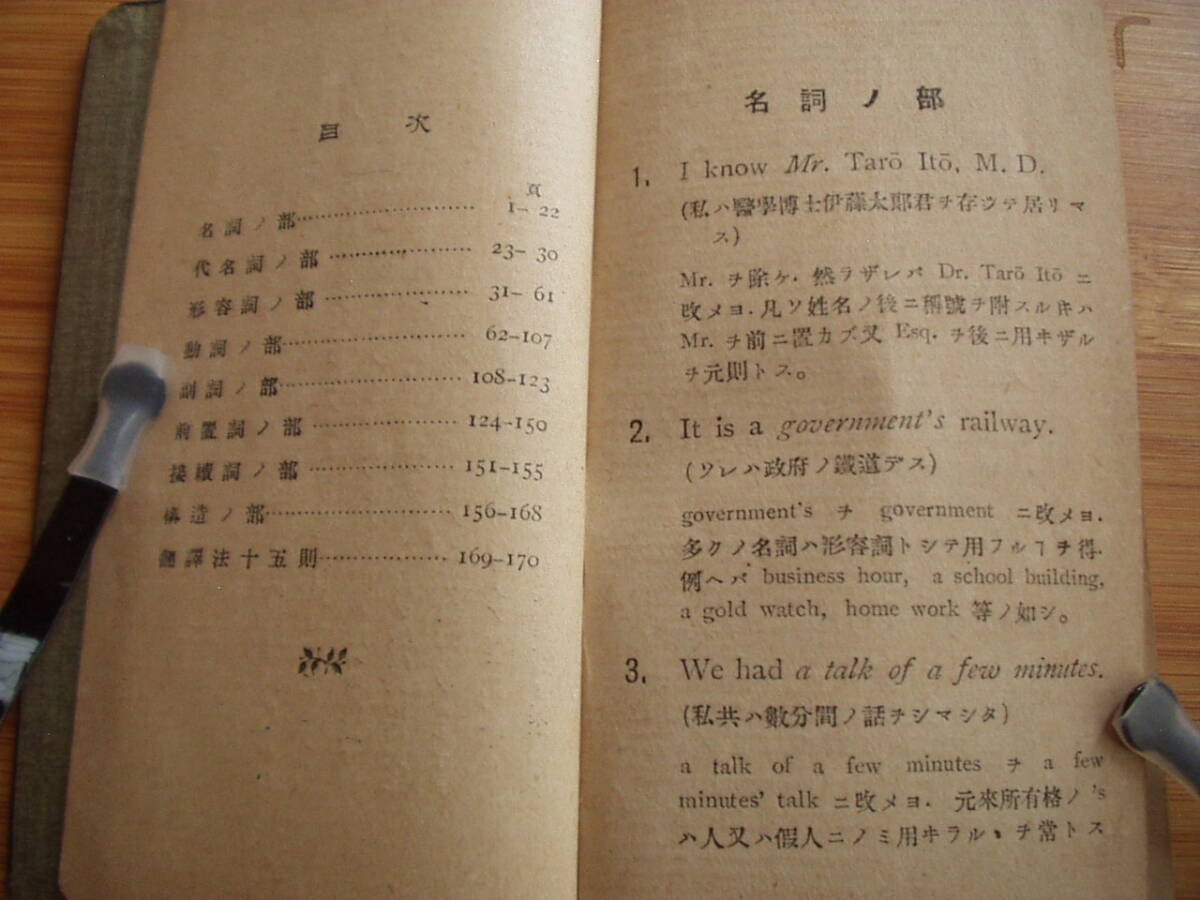 目次
頁
名詞ノ部 1-22
代名詞ノ部 23-30
形容詞ノ部 31-61
動詞ノ部 62-107
副詞ノ部 108-123
前置詞ノ部 124-150
接續詞ノ部 151-155
構造ノ部 156-168
飜譯法十五則 169-170
名詞ノ部
1. I know Mr. Tarō Itō, M. D.
(私ハ醫學博士伊藤太郎君ヲ存ジテ居リマ
ス)
Mr. ヲ除ケ. 然ラザレバ Dr. Tarō Itō ニ
改メヨ. 凡ソ姓名ノ後ニ稱號ヲ附スル𪜈ハ
Mr. ヲ前ニ置カズ又 Esq. ヲ後ニ用ヰザル
ヲ元則トス。
2. It is a government's railway.
(ソレハ政府ノ鐵道デス)
government's ヲ government ニ改メヨ.
多クノ名詞ハ形容詞トシテ用フルヿヲ得.
例ヘバ business hour, a school building,
a gold watch, home work 等ノ如シ。
3. We had a talk of a few minutes.
(私共ハ數分間ノ話ヲシマシタ)
a talk of a few minutes ヲ a few
minutes' talk ニ改メヨ. 元來所有格ノ 's
ハ人又ハ假人ニノミ用ヰラルヽヲ常トス